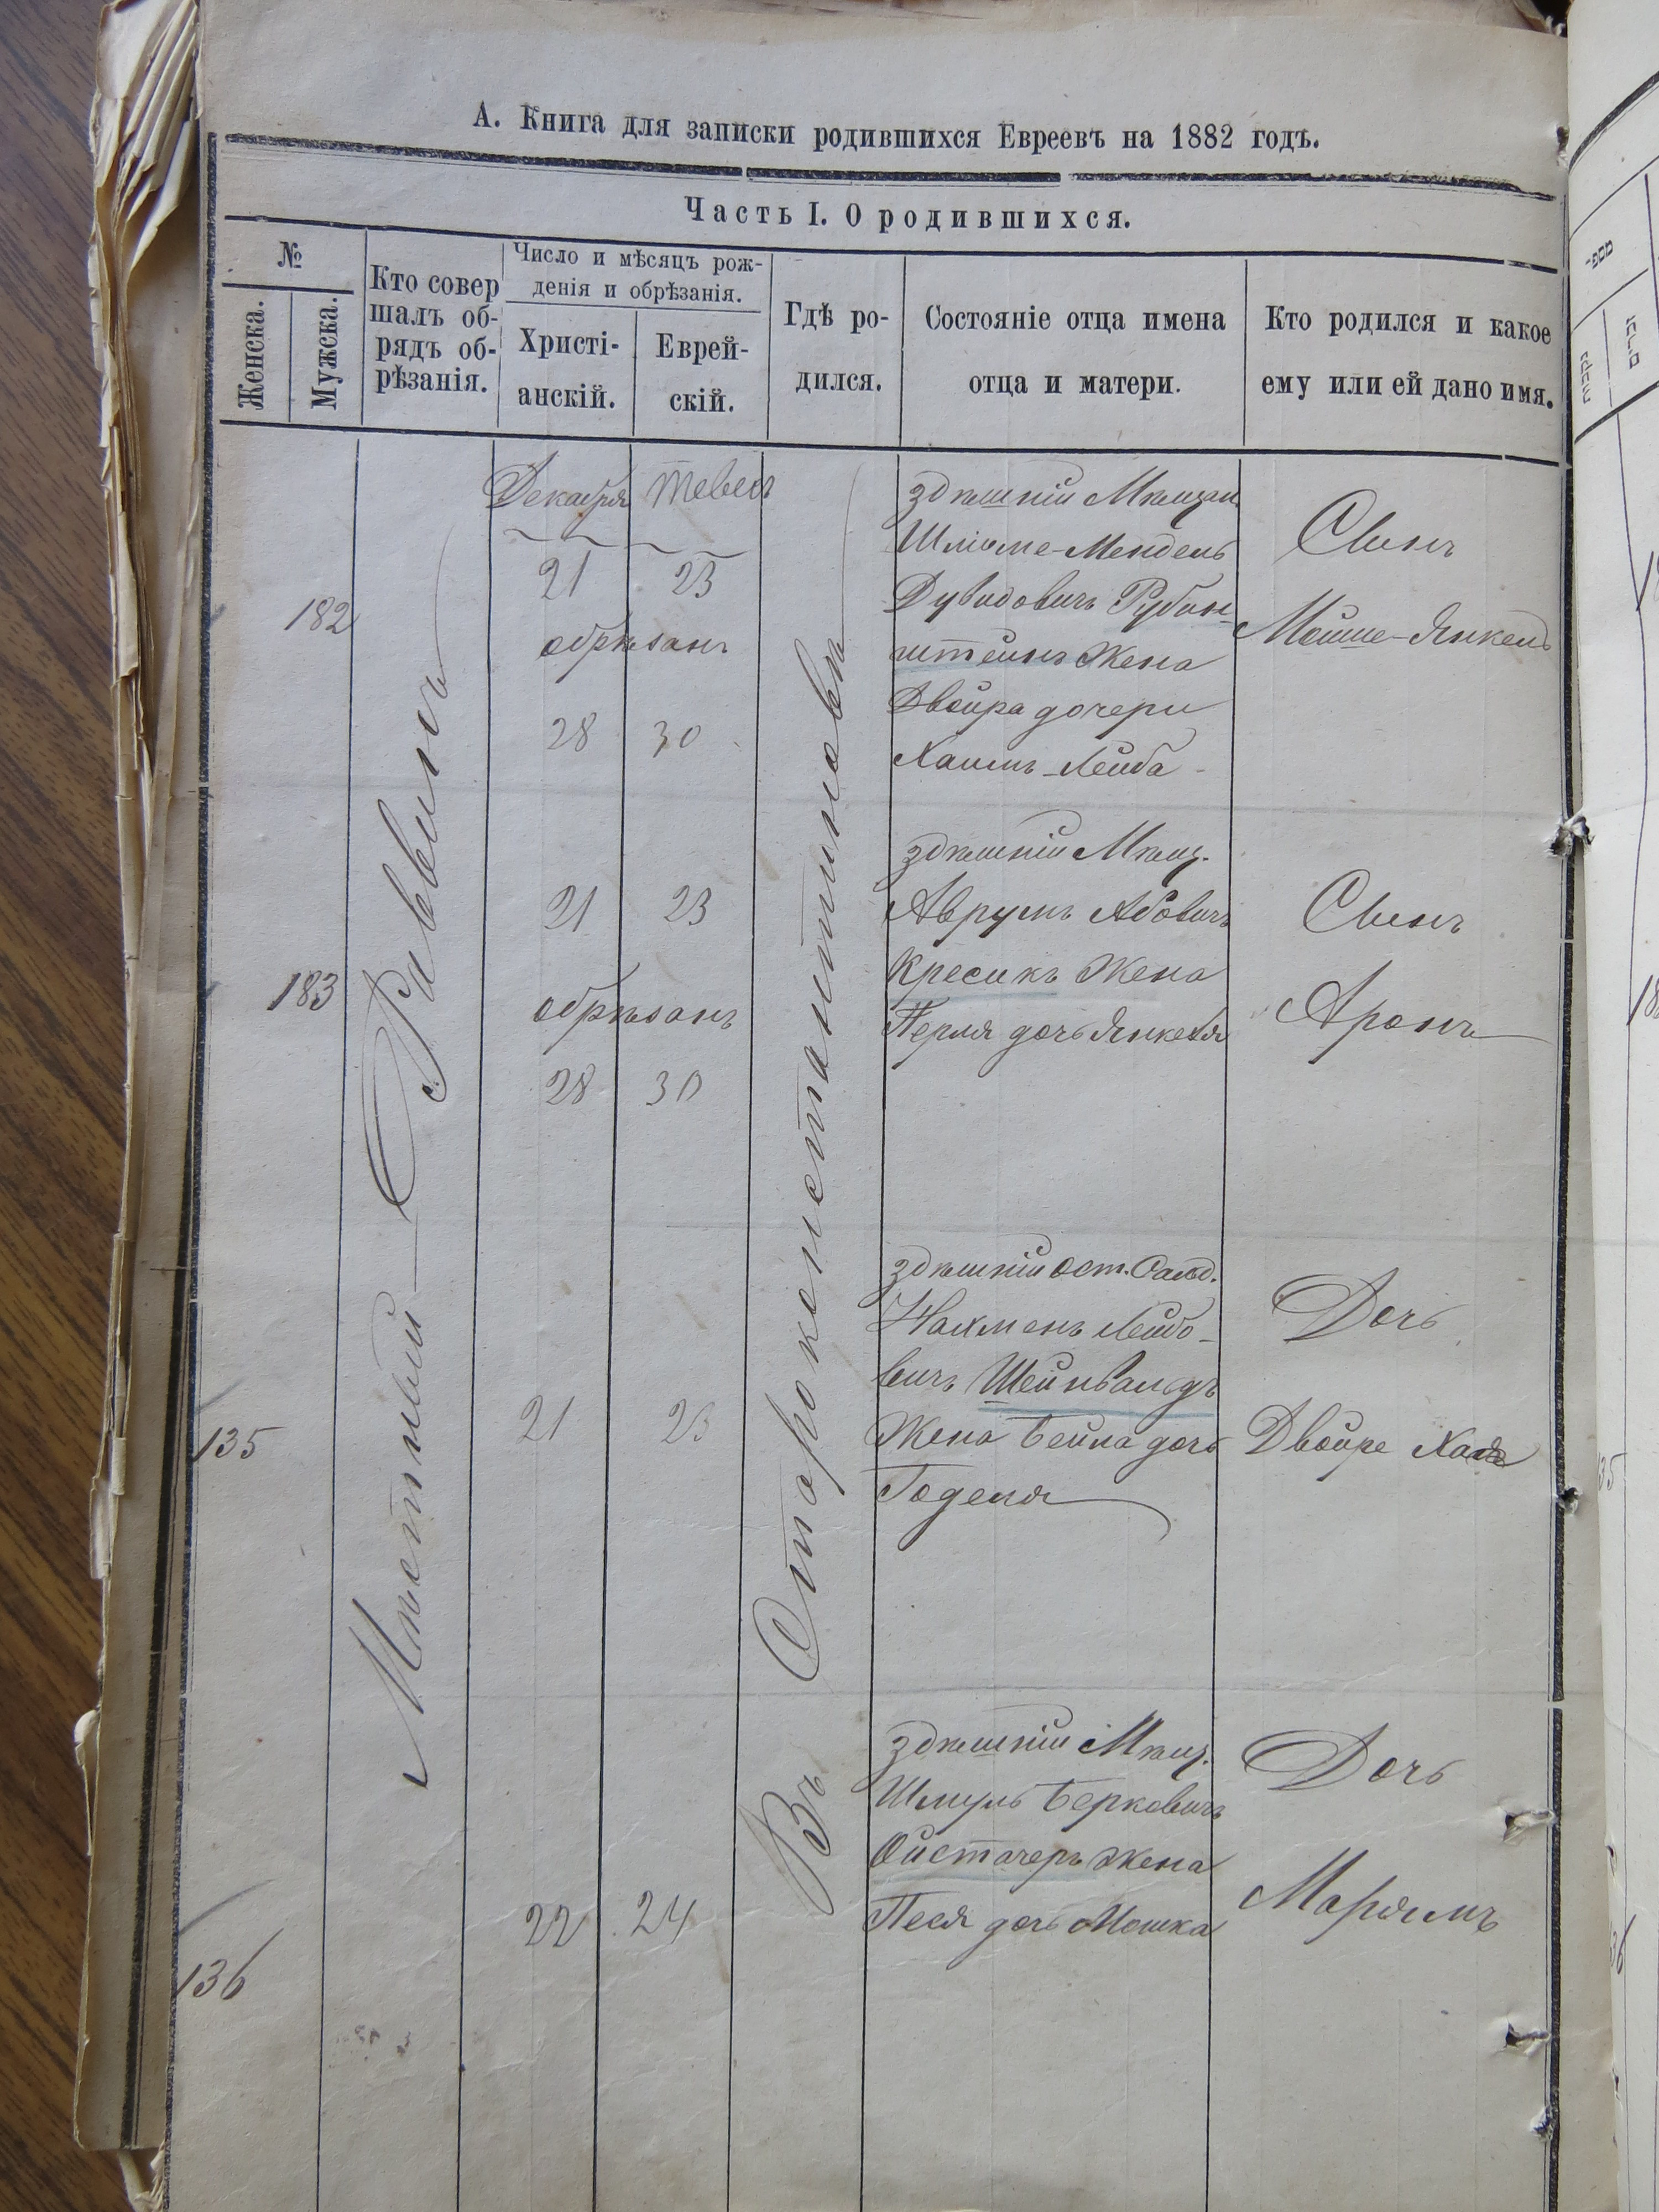 А. Книга для записки родившихся Евреевъ на 1882 годъ.
Часть I. О родившихся.
№
Женска.
Мужска.
Кто совер
шалъ об-
рядъ об-
рѣзанія.
Число и мѣсяцъ рож-
денія и обрѣзанія.
Христі-
анскій.
Еврей-
скій.
Гдѣ ро-
дился.
Состояніе отца имена
отца и матери.
Кто родился и какое
ему или ей дано имя.
Мѣстный Раввинъ
Въ Староконстантиновѣ
Декабря Тевесъ
182
21 23
обрѣзанъ
28 30
здѣшній Мѣщан.
Шліоме-Мендель
Дувидовичъ Рубин-
штейнъ Жена
Двойра дочери
Хаимъ-Лейба
Сынъ
Мойше-Янкель
183
21 23
обрѣзанъ
28 30
здѣшній Мѣщ.
Аврумъ Абовичъ
Кресикъ Жена
Перля дочь Янкеля
Сынъ
Аронъ
135
21 23
здѣшній Ост. Салд.
Нахменъ Лейбо-
вичъ Шейнвальдъ
Жена Бейла дочь
Годеля
Дочь
Двойре Хая
136
22 24
здѣшній Мѣщ.
Шмуль Берковичъ
Ойстачеръ Жена
Песя дочь Мошка
Дочь
Марьямъ